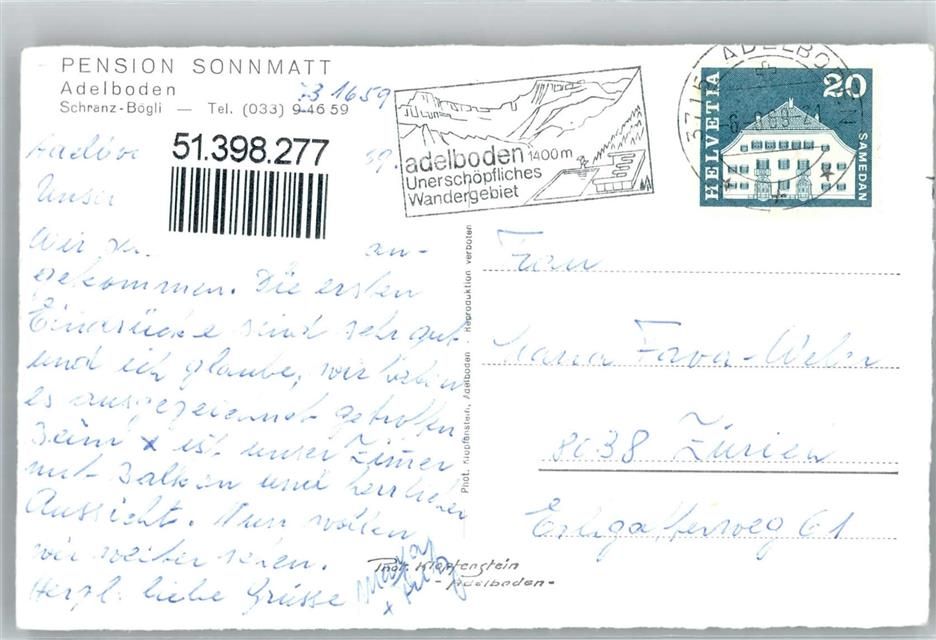 PENSION SONNMATT
Adelboden
73 16 59
Schranz-Bögli — Tel. (033) 9 46 59
51.398.277
Unser
Wir an-
gekommen. Die ersten
Eindrücke sind sehr gut
und ich glaube, wir haben
es ausgezeichnet getroffen
x ist unser Zimmer
mit Balkon und herrlicher
Aussicht. Nun wollen
wir weiter sehen.
Herzl. liebe Grüsse
adelboden 1400 m
Unerschöpfliches
Wandergebiet
3715 ADELBODEN
HELVETIA
20
SAMEDAN
Phot. Klopfenstein, Adelboden Reproduktion verboten
Frau
Maria Fava-Weber
8038 Zürich
61
Phot. Klopfenstein
- Adelboden -